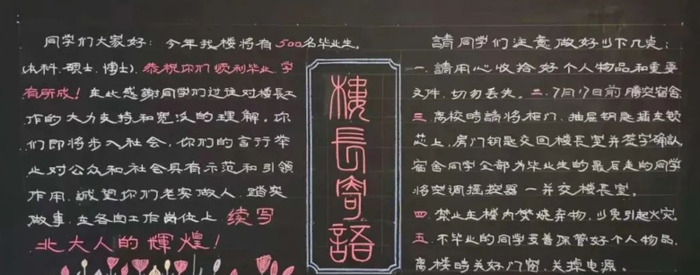 同学们大家好：今年我楼将有500名毕业生
(本科、硕士、博士)，恭祝你们顺利毕业，学
有所成！在此感谢同学们过往对楼长工
作的大力支持和宽泛的理解，你
们即将步入社会，你们的言行举
止对公众和社会具有示范和引领
作用，诚望你们老实做人，踏实
做事，在各自工作岗位上，续写
北大人的輝煌！
樓長寄語
請同学们注意做好以下几点：
一、請用心收拾好个人物品和重要
文件，切勿丢失。二、7月17日前腾空宿舍
三、离校時請将柜门、抽屉钥匙插在锁
芯上，房门钥匙交回楼长室并签字确认
宿舍同学全部为毕业生的最后走的同学
将空调遥控器一并交楼长室。
四、禁止在楼内焚烧弃物，以免引起火灾
五、不毕业的同学妥善保管好个人物品，
离楼時关好门窗，关掉电源。